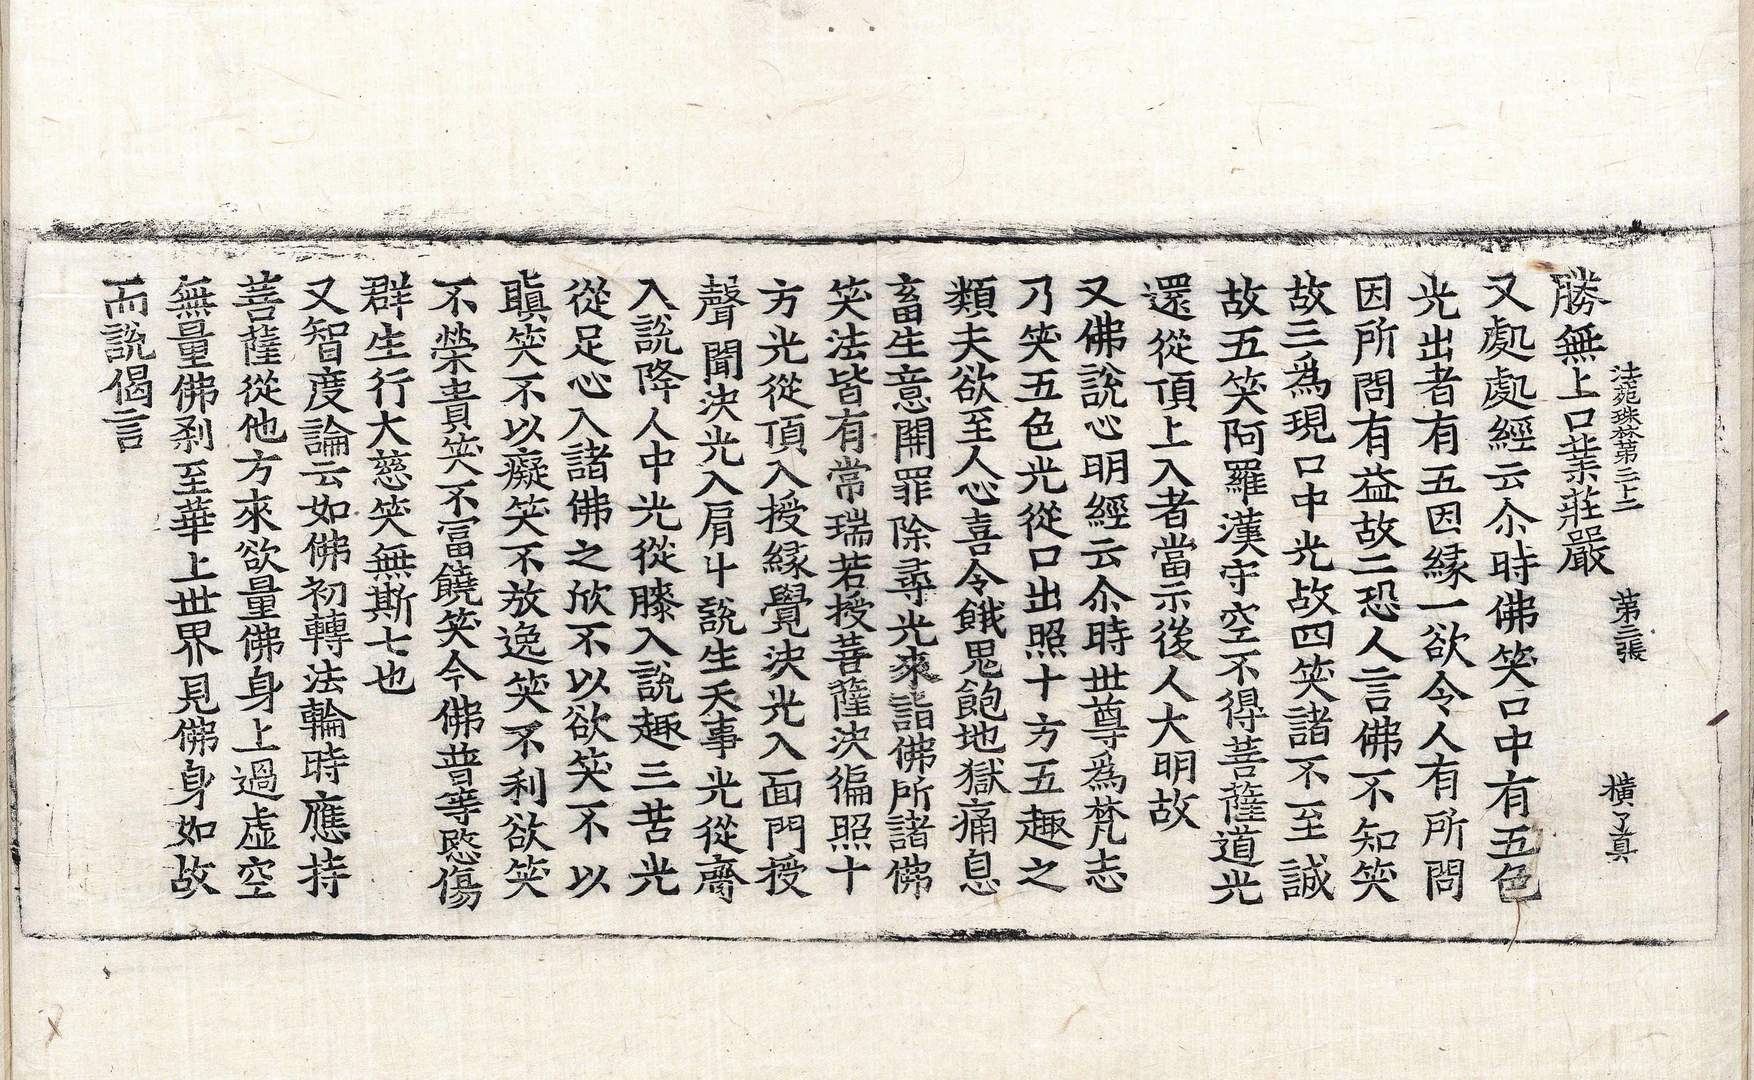 法苑珠林第二十二　第二張　橫　了真
勝無上口業莊嚴
又處處經云尒時佛笑口中有五色
光出者有五因緣一欲令人有所問
因所問有益故二恐人言佛不知笑
故三為現口中光故四笑諸不至誠
故五笑阿羅漢守空不得菩薩道光
還從頂上入者當示後人大明故
又佛說心明經云尒時世尊為梵志
乃笑五色光從口出照十方五趣之
類天欲至人心喜令餓鬼飽地獄痛息
畜生意開罪除尋光來詣佛所諸佛
笑法皆有常瑞若授菩薩決徧照十
方光從頂入授緣覺決光入面門授
聲聞決光入肩斗說生天事光從齊
入說降人中光從膝入說趣三苦光
從足心入諸佛之欣不以欲笑不以
瞋笑不以癡笑不放逸笑不利欲笑
不榮貴笑不富饒笑今佛普等愍傷
群生行大慈笑無斯七也
又智度論云如佛初轉法輪時應持
菩薩從他方來欲量佛身上過虛空
無量佛剎至華上世界見佛身如故
而說偈言